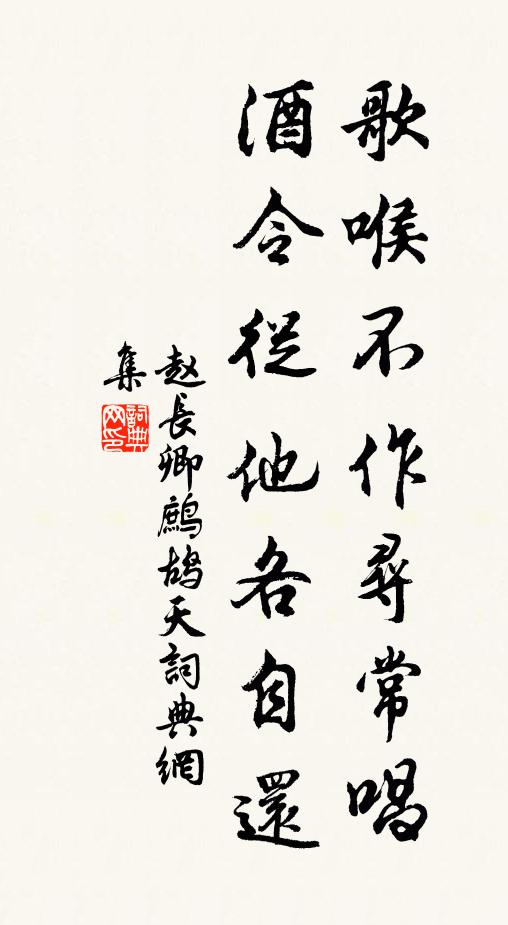 歌喉不作尋常唱
酒令從他各自還
赵長卿鷓鴣天詞典網
集
詞典网印